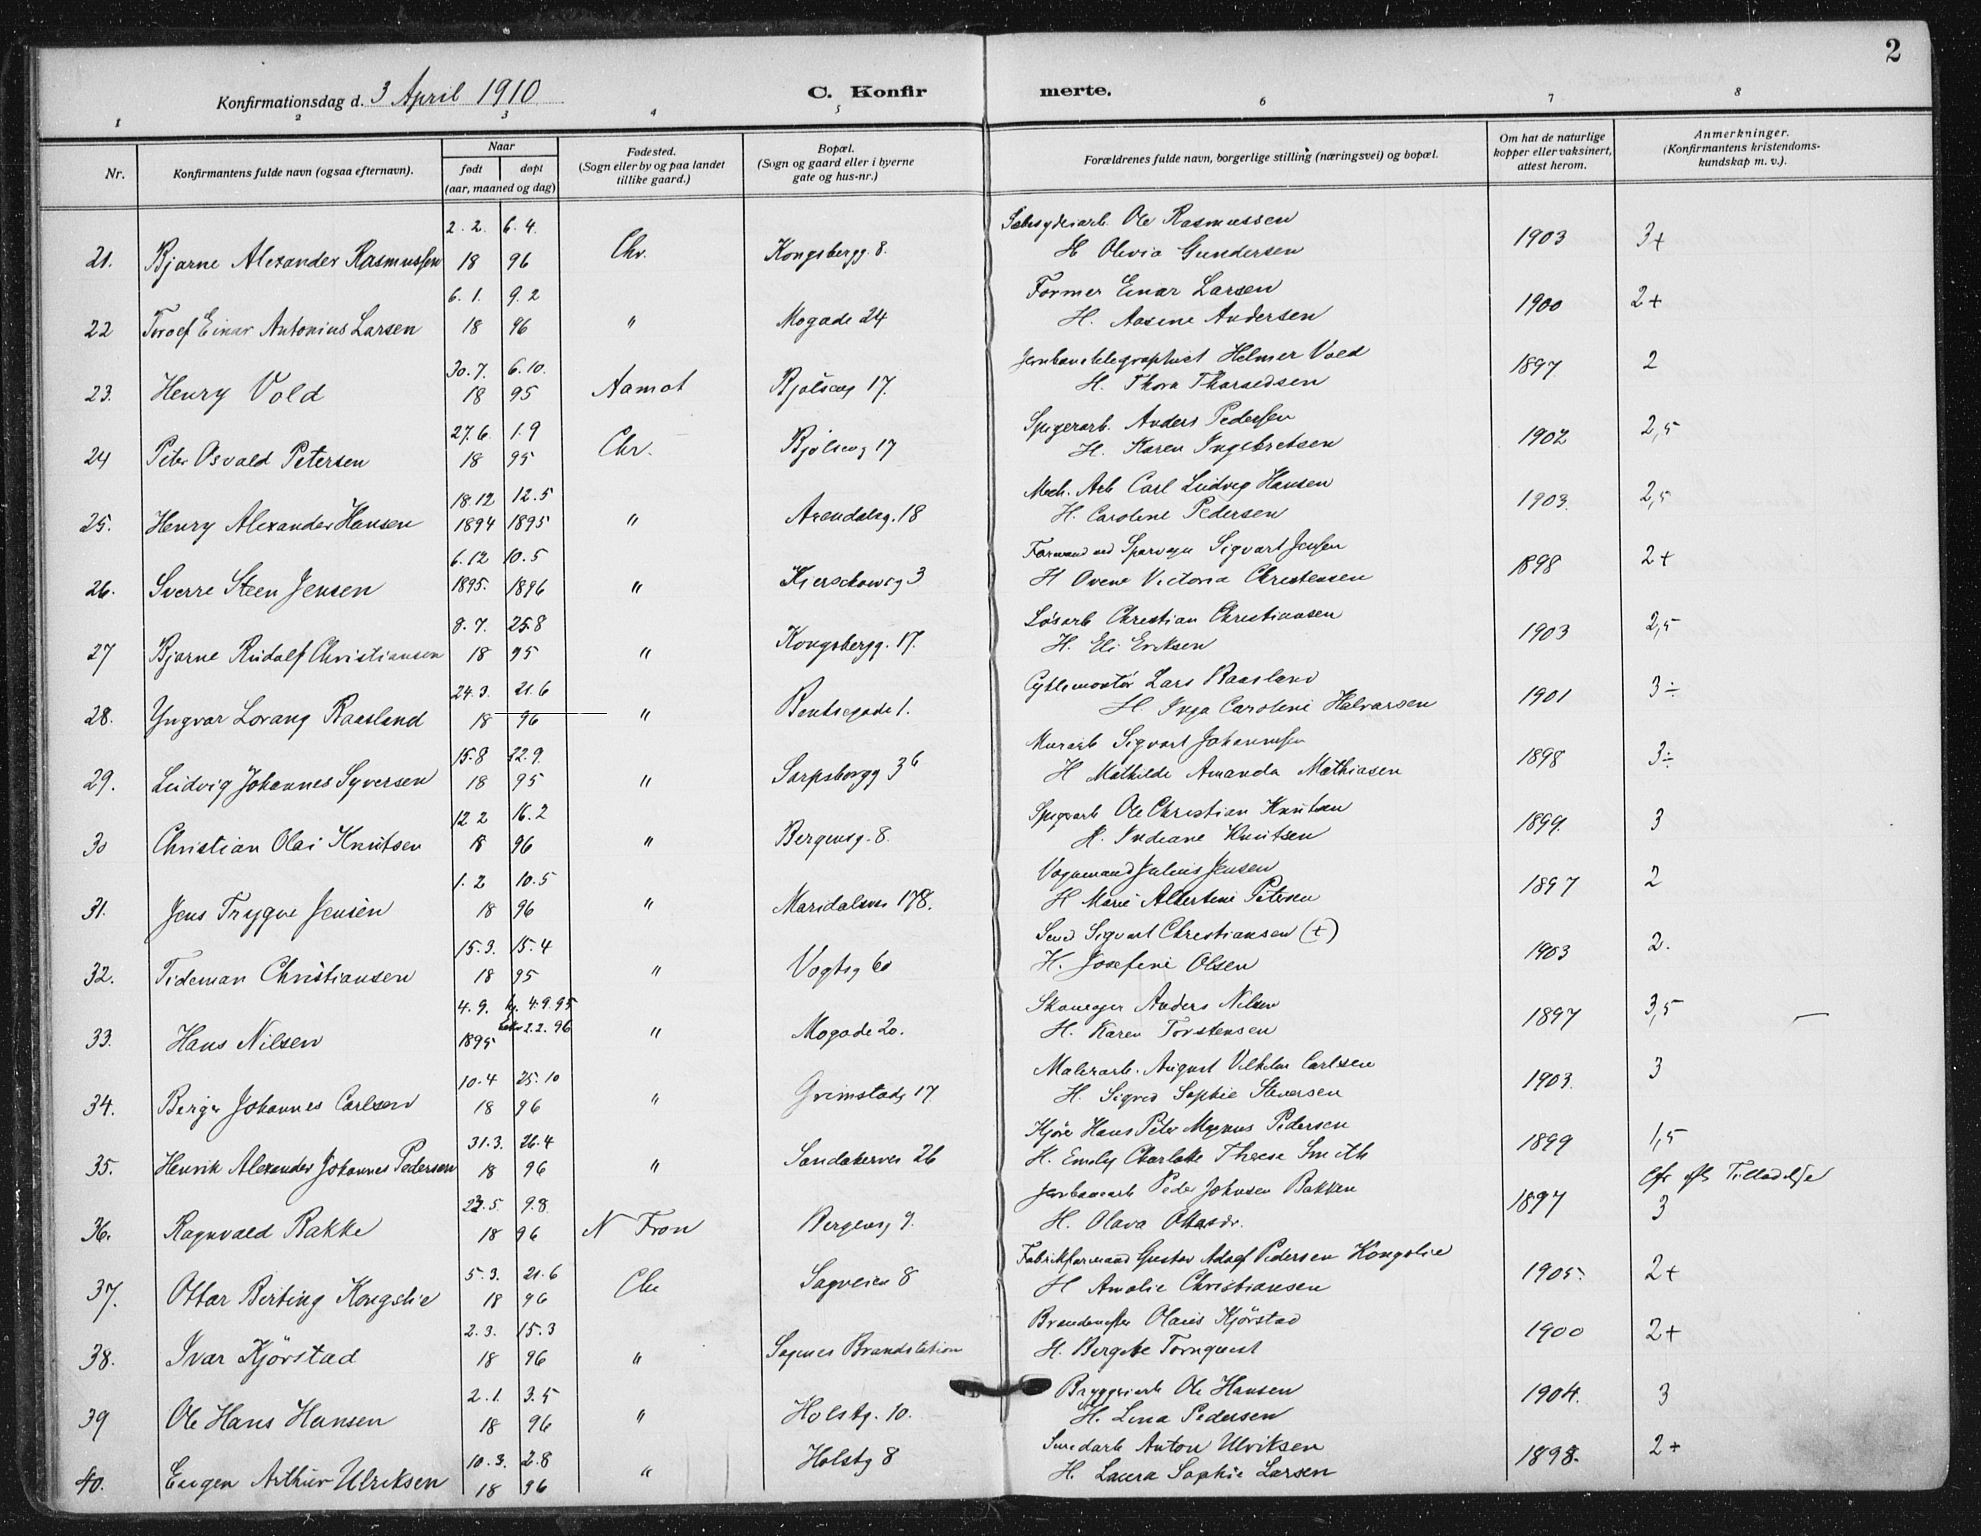 2
Konfirmationsdag d. 3 April 1910 C. Konfir merte.
1 2 3 4 5 6 7 8
Nr. Konfirmantens fulde navn (ogsaa efternavn). Naar født døpt (aar, maaned og dag) Fødested. (Sogn eller by og paa landet tillike gaard.) Bopæl. (Sogn og gaard eller i byerne gate og hus-nr.) Forældrenes fulde navn, borgerlige stilling (næringsvei) og bopæl. Om hat de naturlige kopper eller vaksinert, attest herom. Anmerkninger. (Konfirmantens kristendomskundskap m. v.).
2. 2. 6. 4. Ole Rasmussen
21. Bjarne Alexander Rasmussen 18 96 Chr. Kongsbergg. 8. H Olivia Gundersen 1903 3+
6. 1. 9. 2 Former Einar Larsen
22 Einar Antonius Larsen 18 96 " Mogade 24 H. Aasine Andersen 1900 2+
30. 7. 6. 10. Jernbanetelegraphist Helmer Vold
23. Henry Vold 18 95 Aamot Bjølseng 17. H. Thora 1897 2
27. 6. 1. 9 Spigerarb. Anders Pedersen
24 Peter Osvald Petersen 18 95 Chr. Bjølseng 17 H. Karen Ingebretsen 1902 2,5
18. 12 12. 5 Mek. Arb Carl Ludvig Hansen
25. Henry Alexander Hansen 1894 1895 " Arendalsg. 18 H. Caroline Pedersen 1903 2,5
6. 12 10. 5 Formand ved Sporvejn Sigvart Jensen
26. Sverre Steen Jensen 1895. 1896 " Kierschowsg 3 H Ovene Victoria Christensen 1898 2+
8. 7. 25. 8 Løsarb Christian Christiansen
27 Bjarne Rudolf Christiansen 18 95 " Kongsbergg. 17. H. Eli Eriksen 1903 2,5
24. 3. 21. 6 Cyklemontør Lars Raasland
28. Yngvar Lorang Raasland 18 96 " Bentsegade 1. H Inga Caroline Halvorsen 1901 3÷
15. 8 22. 9. Murarb Sigvart Johannesen
29. Ludvig Johannes Syversen 18 95 " Sarpsborgg 36 H Mathilde Amanda Mathiasen 1898 3÷
12 2 16. 2 Spigerarb Ole Christian Knutsen
30 Christian Olai Knutsen 18 96 " Bergensg. 8. H. Indiane Knutsen 1899. 3
1. 2 10. 5 Vognmand Julius Jensen
31. Jens Trygve Jensen 18 96 " Maridalsvei 178. H Marie Albertine Petersen 1897 2
15. 3. 15. 4 Smed Sigvart Christiansen (+)
32. Tideman Christiansen 18 95 " Vogtsg 60 H. Josefine Olsen 1903 2.
4. 9. 4. 9. 95 Skomager Anders Nilsen
33. Hans Nilsen 1895 2. 2. 96 " Mogade 20. H. Karen Torstensen 1897 3,5 —
10. 4 25. 10 Malerarb. August Vilhelm Carlsen
34. Birger Johannes Carlsen 18 96 " Grimstadg 17 H. Sigrid Sophie Steversen 1903. 3
31. 3. 26. 4 Kjører Hans Peter Magnus Pedersen
35. Henrik Alexander Johannes Pedersen 18 96 " Sandakervei 26 H. Emily Charlotte Therese Smith 1899 1,5
23. 5. 9. 8 Jernbanearb Peder Johnsen Bakken Tilladelse
36. Ragnvald Bakke 18 96 N Fron Bergensg 9. H. Olava 1897 3
5. 3. 21. 6 Fabrikformand Gustav Adolf Pedersen Kongslie
37. Ottar Birting Kongslie 18 96 Chr Sagveien 8 H Amalie Christiansen 1905. 2+
2. 3. 15. 3 Brandmester Olaus Kjørstad
38. Ivar Kjørstad 18 96 " Sagenes Brandstation H. Bergitte Tornquist 1900 2+
2. 1. 3. 5 Bryggeriarb Ole Hansen
39 Ole Hans Hansen 18 96 " Holstg. 10. H. Lina Pedersen 1904. 3
10. 3. 2. 8 Smedarb Anton Ulriksen
40. Eugen Arthur Ulriksen 18 96 " Holstg 8 H. Laura Sophie Larsen 1898. 2+